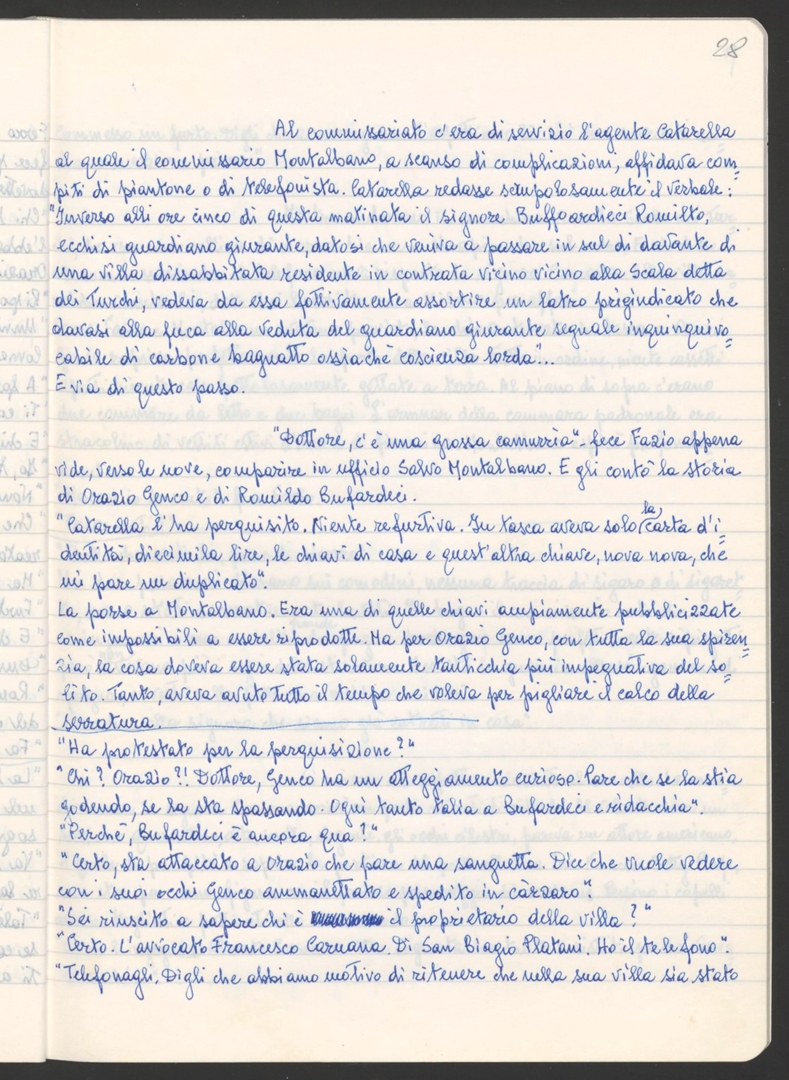 28
Al commissariato c'era di servizio l'agente Catarella
al quale il commissario Montalbano, a scanso di complicazioni, affidava com=
piti di piantone o di telefonista. Catarella redasse scrupolosamente il verbale:
"Inverso alli ore cinco di questa matinata il signore Buffoardieci Romilto,
ecchisi guardiano giurante, datosi che veniva a passare in sul di davante di
una villa dissabbitata residente in contrata vicino vicino alla Scala detta
dei Turchi, vedeva da essa fottivamente assortire un latro prigindicato che
davasi alla fuca alla veduta del guardiano giurante segnale inquinquivo=
cabile di carbone bagnatto ossia chè coscienza lorda"..
E via di questo passo.
"Dottore, c'è una grossa camurrìa" fece Fazio appena
vide, verso le nove, comparire in ufficio Salvo Montalbano. E gli contò la storia
di Orazio Genco e di Romildo Bufardeci.
"Catarella l'ha perquisito. Niente refurtiva. In tasca aveva solo la carta d'i=
dentità, diecimila lire, le chiavi di casa e quest'altra chiave, nova nova, che
mi pare un duplicato".
La porse a Montalbano. Era una di quelle chiavi ampiamente pubblicizzate
come impossibili a essere riprodotte. Ma per Orazio Genco, con tutta la sua spiren=
zia, la cosa doveva essere stata solamente tanticchia più impegnativa del so=
lito. Tanto, aveva avuto tutto il tempo che voleva per pigliare il calco della
serratura.
"Ha protestato per la perquisizione?"
"Chi? Orazio?! Dottore, Genco ha un atteggiamento curioso. Pare che se la stia
godendo, se la sta spassando. Ogni tanto talìa a Bufardeci e ridacchia".
"Perchè, Bufardeci è ancora qua?"
"Certo, sta attaccato a Orazio che pare una sanguetta. Dice che vuole vedere
con i suoi occhi Genco ammanettato e spedito in càrzaro".
"Sei riuscito a sapere chi è il proprietario della villa?"
"Certo. L'avvocato Francesco Caruana. Di San Biagio Platani. Ho il telefono".
"Telefonagli. Digli che abbiamo motivo di ritenere che nella sua villa sia stato